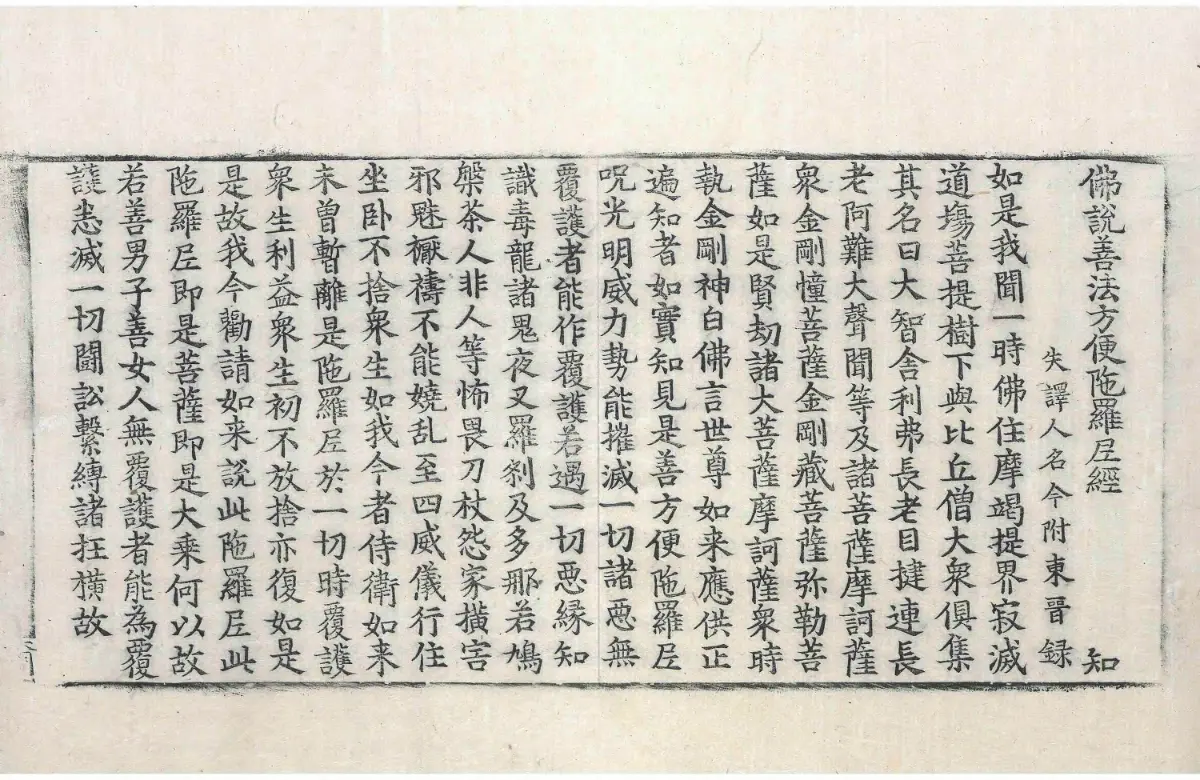 佛說善法方便陁羅尼經 知
失譯人名今附東晉錄
如是我聞一時佛住摩竭提界寂滅
道場菩提樹下與比丘僧大衆俱集
其名曰大智舍利弗長老目揵連長
老阿難大聲聞等及諸菩薩摩訶薩
衆金剛憧菩薩金剛藏菩薩弥勒菩
薩如是賢劫諸大菩薩摩訶薩衆時
執金剛神白佛言世尊如来應供正
遍知者如實知見是善方便陁羅尼
呪光明威力勢能摧滅一切諸惡無
覆護者能作覆護若遇一切惡緣知
識毒龍諸鬼夜叉羅剎及多那若鳩
槃茶人非人等怖畏刀杖怨家橫害
邪魅懕禱不能嬈乱至四威儀行住
坐卧不捨衆生如我今者侍衛如来
未曾暫離是陁羅尼於一切時覆護
衆生利益衆生初不放捨亦復如是
是故我今勸請如来說此陁羅尼此
陁羅尼即是菩薩即是大乘何以故
若善男子善女人無覆護者能為覆
護恚滅一切鬪訟繫縛諸抂橫故